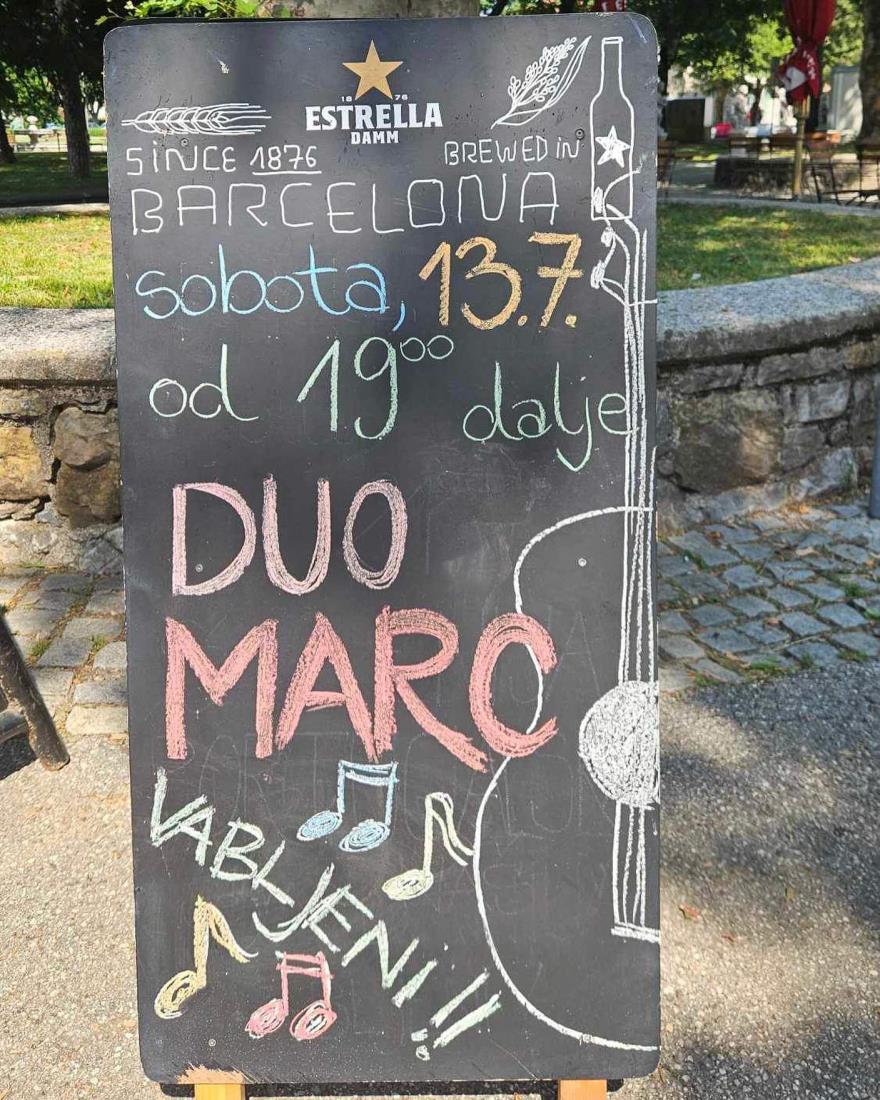 18 76
ESTRELLA
DAMM
SINCE 1876 BREWED IN
BARCELONA
sobota, 13.7.
od 19⁰⁰ dalje
DUO
MARC
VABLJENI!!